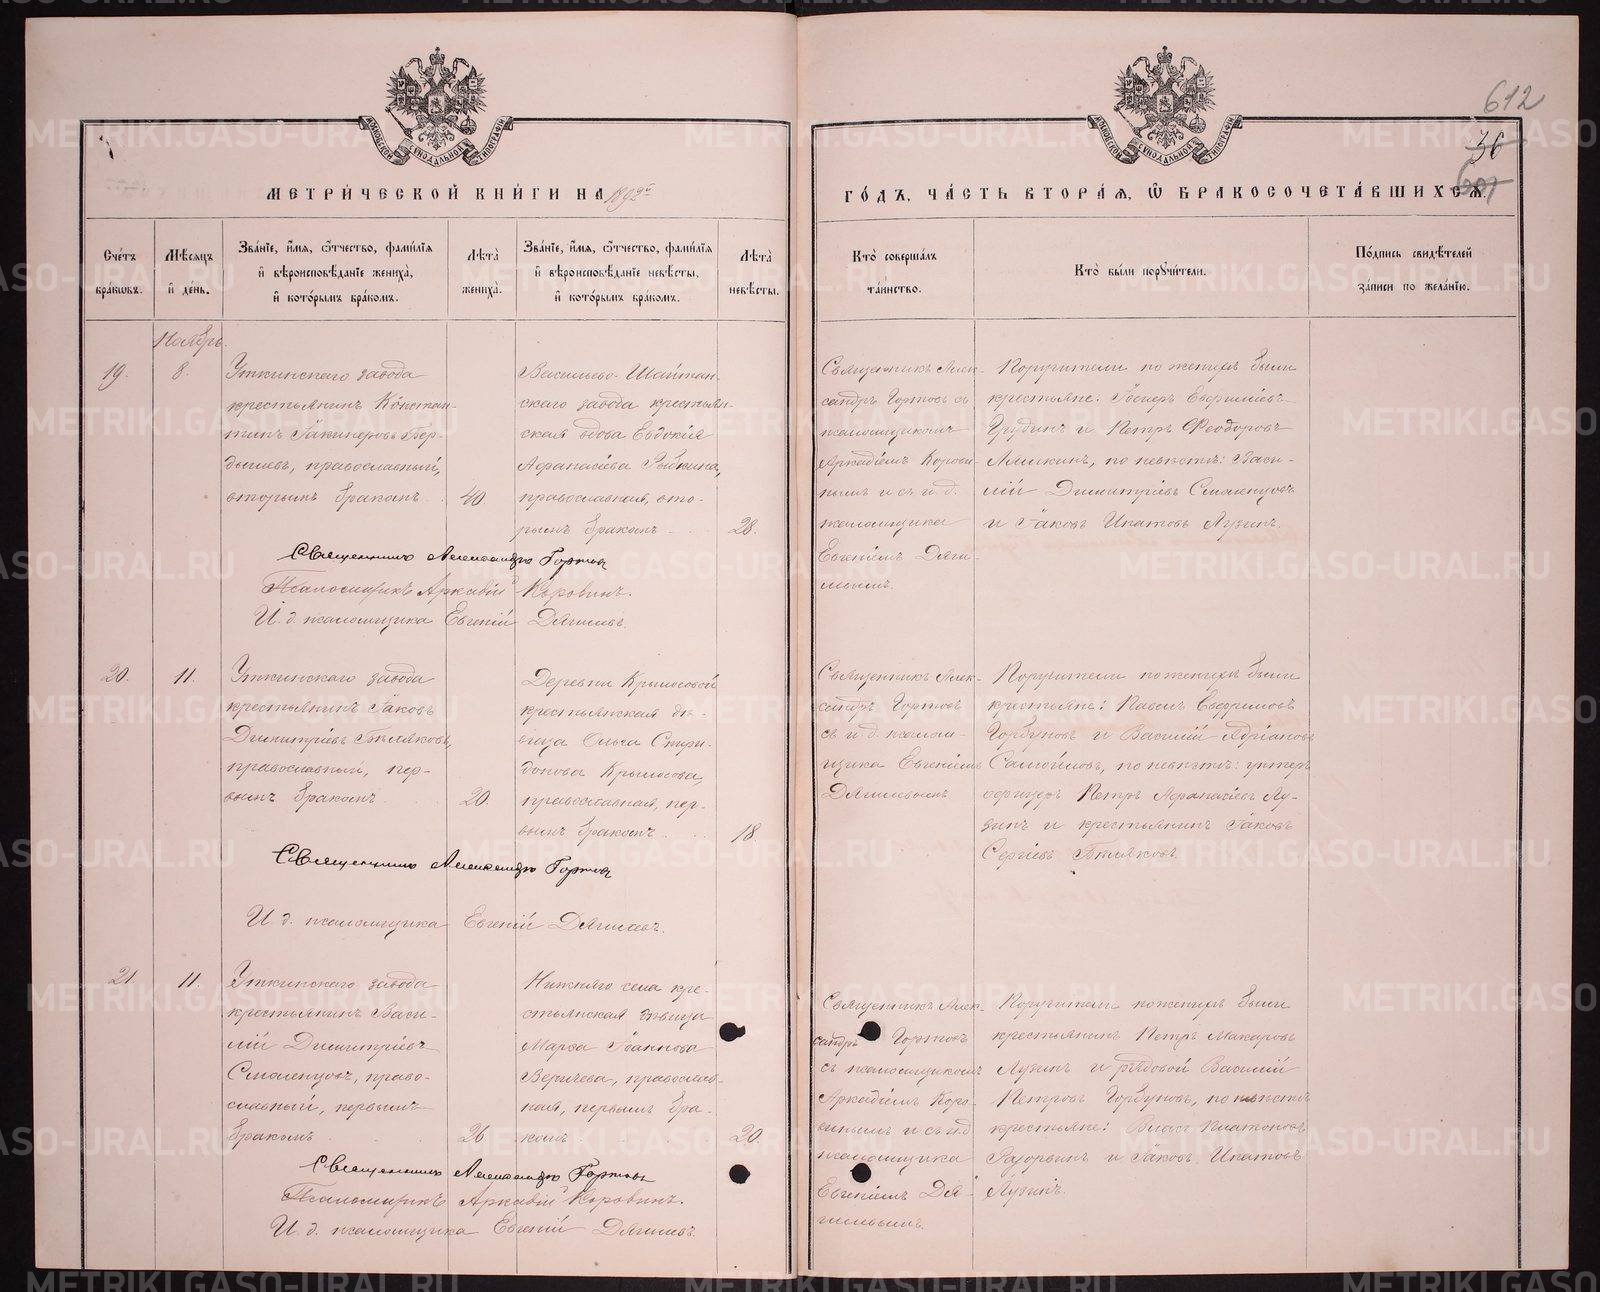 612
36
МЕТРИ́ЧЕСКОЙ КНИ́ГИ НА 1892й
ГО́ДЪ, ЧА́СТЬ ВТОРА́Я, Ѿ БРАКОСОЧЕТА́ВШИХСЯ.
Сче́тъ бра́кѡвъ.
Мѣ́сяцъ и҆ де́нь.
Зва́нїе, и҆́мя, ѻ҆́тчество, фами́лїя и҆ вѣроисповѣ́данїе жениха̀, и҆ кото́рымъ бра́комъ.
Лѣ́та̀ жениха̀.
Зва́нїе, и҆́мя, ѻ҆́тчество, фами́лїя и҆ вѣроисповѣ́данїе невѣ́сты, и҆ кото́рымъ бра́комъ.
Лѣ́та̀ невѣ́сты.
Кто̀ соверша́лъ та́инство.
Кто̀ бы́ли поручи́тели.
По́дпись свидѣ́телей за́писи по жела́нїю.
Ноябрь.
19.
8.
Уткинскаго завода
крестьянинъ Констан-
тинъ Іакинѳовъ Бер-
дышевъ, православный,
вторымъ бракомъ
40.
Васильево-Шайтан-
скаго завода крестьян-
ская вдова Евдокія
Аѳанасіева
православная, вто-
рымъ бракомъ
28.
Священникъ Алек-
сандръ Гортовъ съ
псаломщикомъ
Аркадіемъ Корови-
нымъ и съ и. д.
псаломщика
Евгеніемъ Дяги-
левымъ.
Поручители по женихѣ были
крестьяне:
и Петръ Ѳеодоровъ
Лямкинъ, по невѣстѣ: Васи-
лій Димитріевъ Смоленцовъ
и Іаковъ Ипатовъ Лузинъ.
Священникъ Александръ Гортовъ
Псаломщикъ Аркадій Коровинъ.
И. д. псаломщика Евгеній Дягилевъ.
20.
11.
Уткинскаго завода
крестьянинъ Іаковъ
Димитріевъ Бѣляковъ,
православный, пер-
вымъ бракомъ
20.
Деревни Крылосовой
крестьянская дѣ-
вица Ольга Спири-
донова Крылосова,
православная, пер-
вымъ бракомъ
18.
Священникъ Алек-
сандръ Гортовъ
съ и. д. псалом-
щика Евгеніемъ
Дягилевымъ
Поручители по женихѣ были
крестьяне: Павелъ Евфимовъ
Горбуновъ и Василій Адріановъ
Самойловъ, по невѣстѣ: унтеръ
офицеръ Петръ Аѳанасіевъ Лу-
зинъ и крестьянинъ Іаковъ
Сергіевъ Бѣляковъ.
Священникъ Александръ Гортовъ
И. д. псаломщика Евгеній Дягилевъ.
21.
11.
Уткинскаго завода
крестьянинъ Васи-
лій Димитріевъ
Смоленцовъ, право-
славный, первымъ
бракомъ
26.
Нижняго села кре-
стьянская дѣвица
Марѳа Іоаннова
Веричева, православ-
ная, первымъ бра-
комъ
20.
Священникъ Алек-
сандръ Гортовъ
съ псаломщикомъ
Аркадіемъ Коро-
винымъ и съ и.д.
псаломщика
Евгеніемъ Дя-
гилевымъ.
Поручители по женихѣ были
крестьянинъ Петръ Макаровъ
Лузинъ и рядовой Василій
Петровъ Горбуновъ, по невѣстѣ
крестьяне: Власъ Платоновъ
и Іаковъ Ипатовъ
Лузинъ.
Священникъ Александръ Гортовъ
Псаломщикъ Аркадій Коровинъ.
И. д. псаломщика Евгеній Дягилевъ.
METRIKI.GASO-URAL.RU